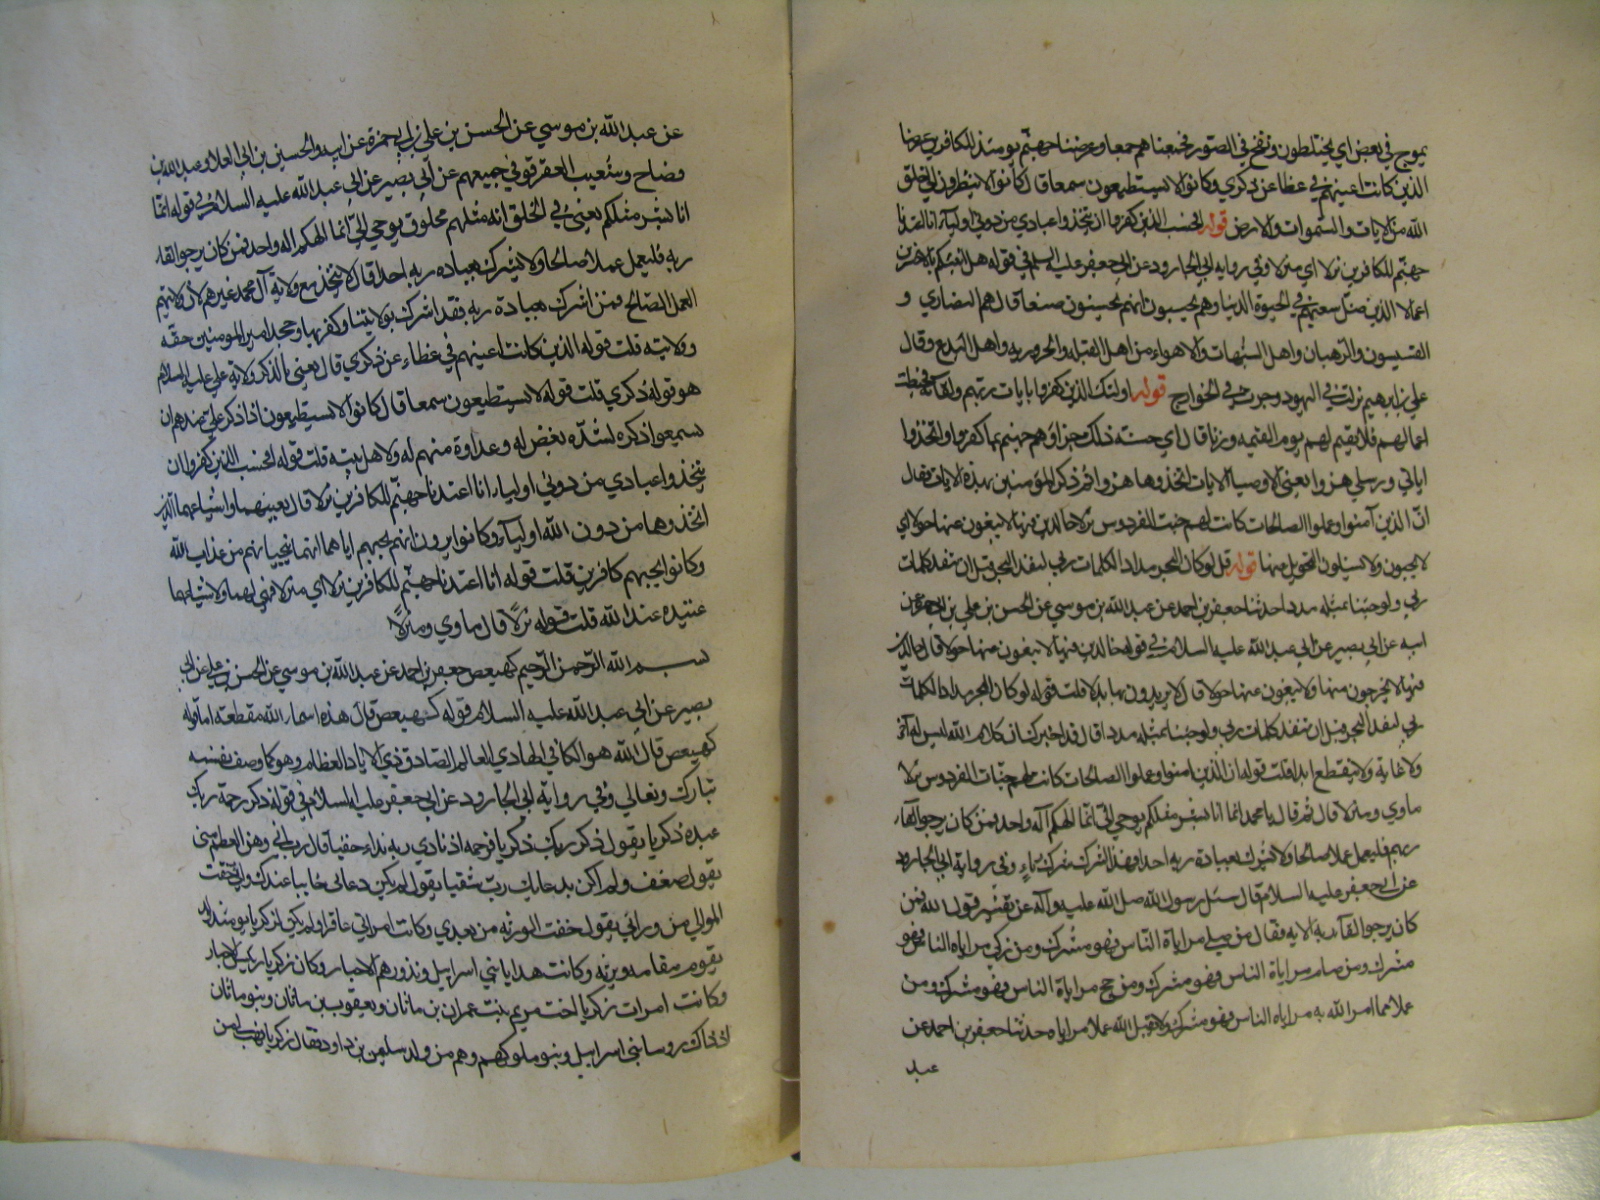 يموج في بعض اي يختلطون ونفخ في الصور فجمعناهم جمعا وعرضنا جهنم يومئذ للكافرين عرضا
الذين كانت اعينهم في غطاء عن ذكري وكانوا لا يستطيعون سمعا قال كانوا لا ينظرون الى خلق
الله من الايات والسموات والارض قوله افحسب الذين كفروا ان يتخذوا عبادي من دوني اولياء انا اعتدنا
جهنم للكافرين نزلا اي منزلا وفي رواية ابي الجارود عن ابي جعفر عليه السلم في قوله هل ننبئكم بالاخسرين
اعمالا الذين ضل سعيهم في الحيوة الدنيا وهم يحسبون انهم يحسنون صنعا قال هم النصارى و
القسيسون والرهبان واهل الشبهات والاهواء من اهل القبلة والحرورية واهل البدع وقال
علي بن ابرهيم نزلت في اليهود وجرت في الخوارج قوله اولئك الذين كفروا بايات ربهم ولقائه فحبطت
اعمالهم فلا نقيم لهم يوم القيمه وزنا قال اي حسنة ذلك جزاؤهم جهنم بما كفروا واتخذوا
اياتي ورسلي هزوا يعني الاوصياء الايات اتخذوها هزوا ثم ذكر المؤمنين بهذه الايات فقال
ان الذين آمنوا وعملوا الصالحات كانت لهم جنت الفردوس نزلا خالدين فيها لا يبغون عنها حولا اي
لا يحبون ولا يسئلون التحويل منها قوله قل لو كان البحر مدادا لكلمات ربي لنفد البحر قبل ان تنفد كلمات
ربي ولو جئنا بمثله مددا حدثنا جعفر بن احمد عن عبد الله بن موسي عن الحسن بن علي بن ابي حمزة عن
ابيه عن ابي بصير عن ابي عبد الله عليه السلام في قوله خالدين فيها لا يبغون عنها حولا قال خالدين
فيها لا يخرجون منها ولا يبغون عنها حولا قال لا يريدون بها بدلا قلت قوله لو كان البحر مدادا لكلمات
ربي لنفد البحر قبل ان تنفد كلمات ربي ولو جئنا بمثله مددا قال قد اخبرك ان كلام الله ليس له آخر
ولا غاية ولا ينقطع ابدا قلت قوله ان الذين امنوا وعملوا الصالحات كانت لهم جنات الفردوس نزلا
ماوي ومنزلا قال ثم قال يا محمد انما انا بشر مثلكم يوحي الي انما الهكم آله واحد فمن كان يرجو القاء
ربه فليعمل عملا صالحا ولا يشرك بعبادة ربه احدا فهذا الشرك شرك رياء وفي رواية ابي الجارود
عن ابي جعفر عليه السلام قال سئل رسول الله صلي الله عليه وآله عن تفسير قول الله فمن
كان يرجو القآء ربه الايه فقال من صلى مراياة الناس فهو مشرك ومن زكي مراياه الناس فهو
مشرك ومن صام مراياة الناس فهو مشرك ومن حج مراياة الناس فهو مشرك ومن
عمل عملا مما امر الله به مراياه الناس فهو مشرك ولا يقبل الله عمل مراياه حدثنا جعفر بن احمد عن
عبد
عن عبد الله بن موسي عن الحسن بن علي بن ابي حمزة عن ابيه والحسين بن ابي العلا وعبد الله بن
وضاح وشعيب العقرقوفي جميعهم عن ابي بصير عن ابي عبد الله عليه السلام في قوله انما
انا بشر مثلكم يعني في الخلق انه مثلهم مخلوق يوحي الي انما الهكم اله واحد فمن كان يرجو القاء
ربه فليعمل عملا صالحا ولا يشرك بعباده ربه احدا قال لا يتخذ مع ولاية آل محمد غيرهم لان ولايتهم
العمل الصالح فمن اشرك بعبادة ربه فقد اشرك بولايتنا وكفر بها وجحد امير المومنين حقه
وولايته قلت قوله الذين كانت اعينهم في غطاء عن ذكري قال يعني بالذكر ولاية علي عليه السلام
هو قوله ذكري قلت قوله لا يستطيعون سمعا قال كانوا لا يستطيعون اذا ذكر علي عندهم ان
يسمعوا ذكره لشدة بغض له وعداوة منهم له ولاهل بيته قلت قوله افحسب الذين كفروا ان
يتخذوا عبادي من دوني اولياء انا اعتدنا جهنم للكافرين نزلا قال يعنيهما واشياعهما الذين
اتخذوها من دون الله اولياء وكانوا يرون انهم بحبهم اياهما انهما ينجيانهم من عذاب الله
وكانوا بحبهم كافرين قلت قوله انا اعتدنا جهنم للكافرين نزلا اي منزلا فهي لهما ولاشياعهما
عتيده عند الله قلت قوله نزلا قال ماوي ومنزلا
بسم الله الرحمن الرحيم كهيعص جعفر بن احمد عن عبد الله بن موسي عن الحسن بن علي عن ابي
بصير عن ابي عبد الله عليه السلام قوله كهيعص قال هذه اسماء الله مقطعة اما قوله
كهيعص قال الله هو الكافي الهادي العالم الصادق ذي الاياد العظام وهو كما وصف نفسه
تبارك وتعالي وفي رواية ابي الجارود عن ابي جعفر عليه السلام في قوله ذكر رحمة ربك
عبده ذكريا يقول ذكر ربك ذكريا فرحمه اذ نادي ربه نداء خفيا قال رب اني وهن العظم مني
يقول ضعف ولم اكن بدعايك رب شقيا يقول لم يكن دعائى خايبا عندك واني خفت
الموالي من ورائي يقول خفت الورثه من بعدي وكانت امراتي عاقرا ولم يكن لزكريا يومئذ ولد
يقوم مقامه ويرثه وكانت هدايا بني اسرايل ونذورهم للاحبار وكان زكريا رئيس الاحبار
وكانت امرات زكريا اخت مريم بنت عمران بن ماثان ويعقوب بن ماثان وبنو ماثان
اذ ذاك روسا بني اسرايل وبنو ملوكهم وهم من ولد سليمن بن داود فقال زكريا فهب لي من